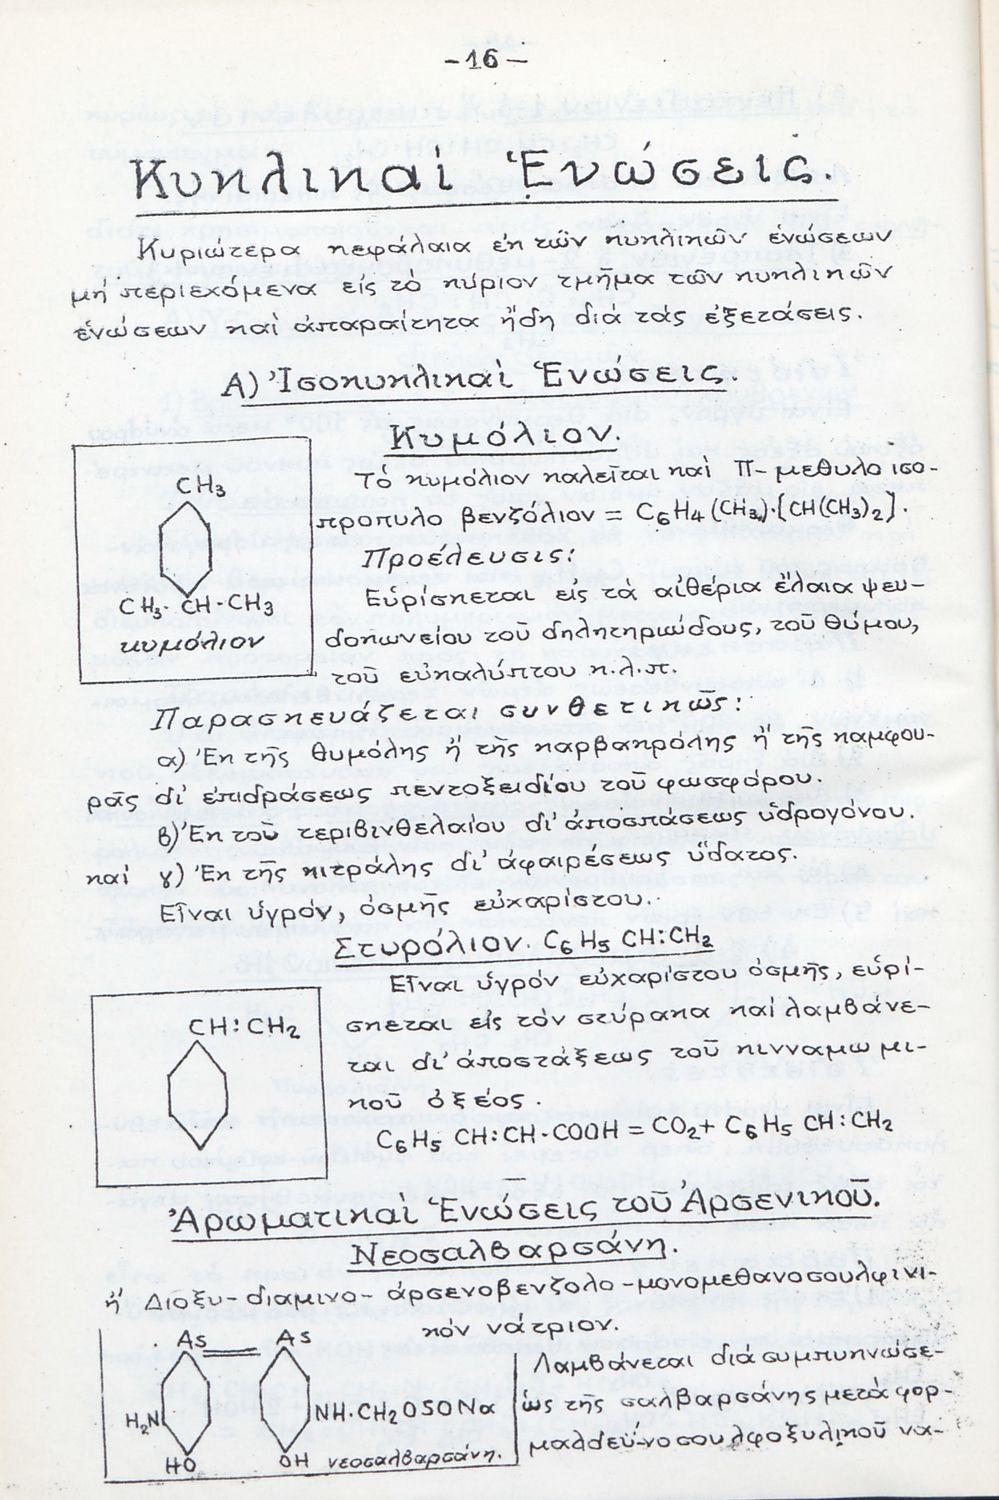 -16-
Κυκλικαὶ Ἑνώσεις
Κυριώτερα κεφάλαια ἐκ τῶν κυκλικῶν ἑνώσεων
μή περιεχόμενα εἰς τὸ κύριον τμῆμα τῶν κυκλικῶν
ἑνώσεων καὶ ἀπαραίτητα ἤδη διά τάς ἐξετάσεις.
Α) Ἰσοκυκλικαὶ Ἑνώσεις.
Κυμόλιον.
Τό κυμόλιον καλεῖται καὶ Π-μεθυλο ισο-
προπυλο βενζόλιον = C6H4(CH3)·[CH(CH3)2].
Προέλευσις:
Εὑρίσκεται εις τὰ αἰθέρια ἔλαια ψευ-
δοκωνείου τοῦ δηλητηριώδους, τοῦ θύμου,
τοῦ εὐκαλύπτου κ.λ.π.
CH3
CH3·CH·CH3
κυμόλιον
Παρασκευάζεται συνθετικῶς:
α) Ἐκ τῆς θυμόλης ἤ τῆς καρβακρόλης ἤ τῆς καμφου-
ρᾶς δι' ἐπιδράσεως πεντοξειδίου τοῦ φωσφόρου.
β) Ἐκ τοῦ τεριβινθελαίου δι' ἀποσπάσεως ὑδρογόνου.
καὶ γ) Ἐκ τῆς κιτράλης δι' ἀφαιρέσεως ὕδατος.
Εἶναι ὑγρόν, ὀσμῆς εὐχαρίστου.
Στυρόλιον. C6H5 CH:CH2
Εἶναι ὑγρόν εὐχαρίστου ὀσμῆς, εὑρί-
σκεται εἰς τὸν στύρακα καὶ λαμβάνε-
ται δι' ἀποστάξεως τοῦ κινναμωμι-
κοῦ ὀξέος.
C6H5 CH:CH·COOH = CO2+ C6H5 CH:CH2
CH:CH2
Ἀρωματικαὶ Ἑνώσεις τοῦ Ἀρσενικοῦ.
Νεοσαλβαρσάνη.
ἤ Διοξυ-διαμινο-ἀρσενοβενζολο-μονομεθανοσουλφινι-
κόν νάτριον.
As As
H2N NH·CH2OSONα
HO OH νεοσαλβαρσάνη.
Λαμβάνεται διά συμπυκνώσε-
ως τῆς σαλβαρσάνης μετά φορ-
μαλδεϋνοσουλφοξυλικοῦ να-